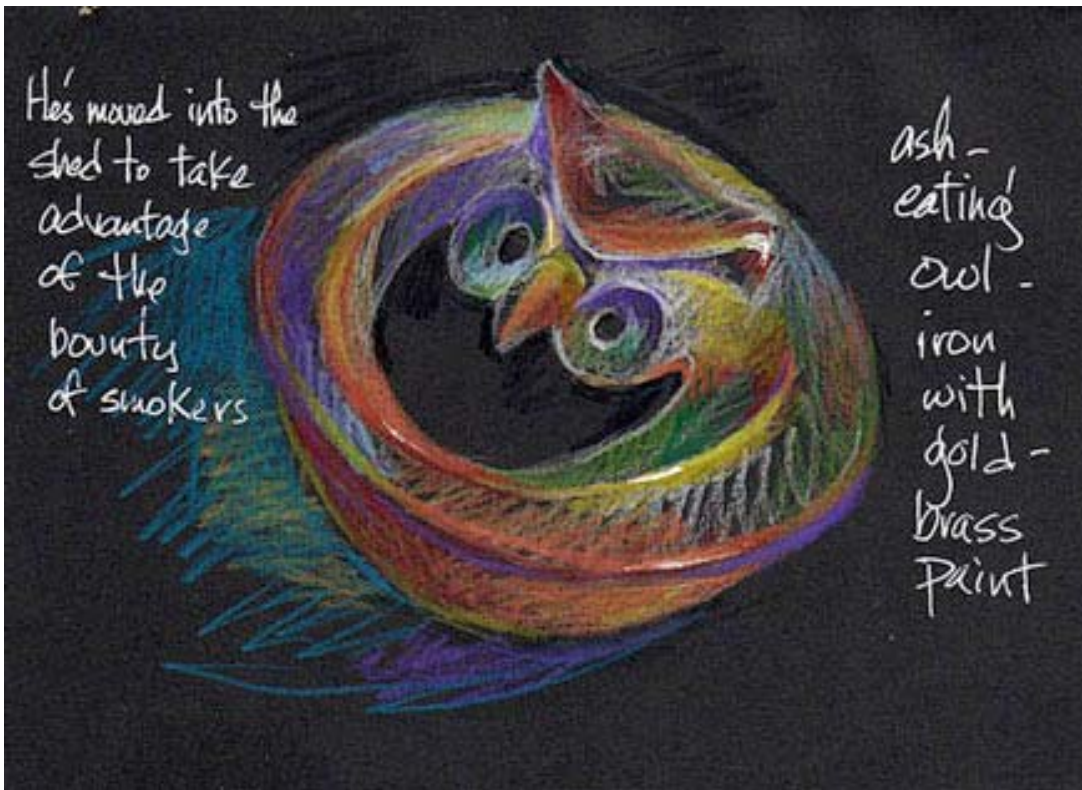 He's moved into the
shed to take
advantage
of the
bounty
of smokers
ash-
eating
owl-
iron
with
gold-
brass
paint